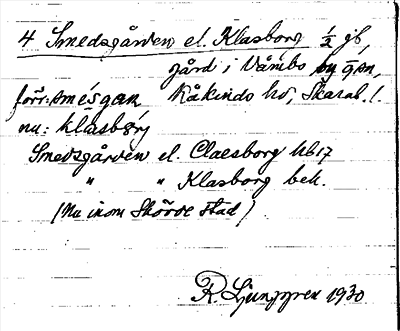 4 Smedsgården el. Klasborg 1/2 gb,
gård i Våmbs by o. sn,
förr: smésgan Kåkinds hd, Skarab. l.
nu: klasbórj
Smedsgården el. Claesborg Ub 17
" " Klasborg bek.
(Nu inom Skövde stad)
R. Ljunggren 1930